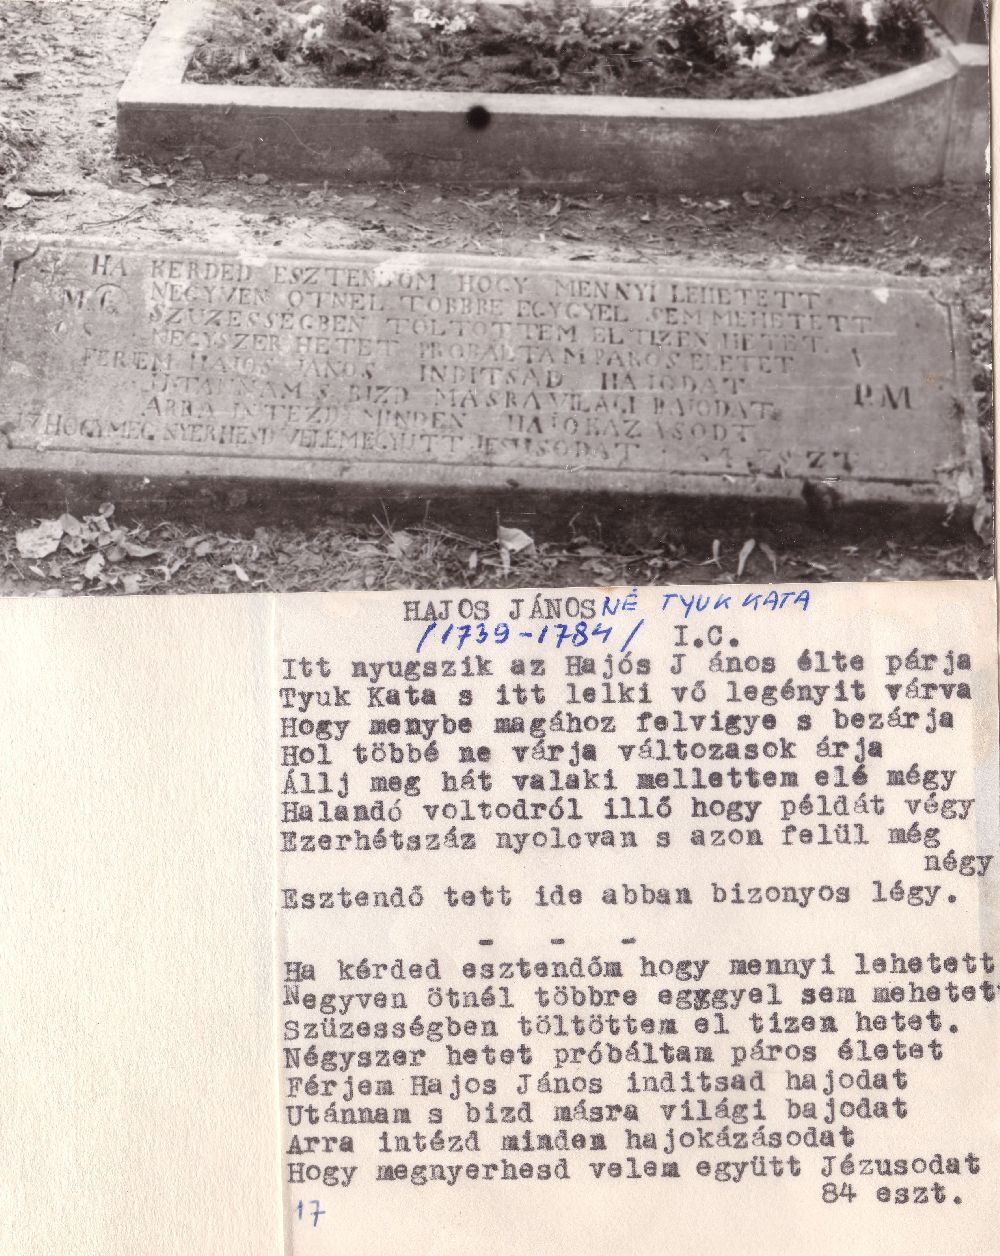 HA KERDED ESZTENDŐM HOGY MENNYI LEHETETT
M.G. NEGYVEN ÖTNEL TOBBRE EGYGYEL SEM MEHETETT
SZŰZESSÉGBEN TÖLTÖTTEM EL TIZEN HETET
NEGYSZER HETET PROBÁLTAM PAROS ELETET
FERJEM HAJOS JÁNOS INDITSAD HAJODAT
UTANNAM S BIZD MASRA VILAGI BAJODAT P.M
ARRA INTEZD MINDEN HAJOKAZASODT
17 HOGY MEG NYERHESD VELEM EGYUTT JESUSODAT 84 ESZT
HAJOS JÁNOSNÉ TYUK KATA
/1739-1784/ I.C.
Itt nyugszik az Hajós J ános élte párja
Tyuk Kata s itt lelki vő legényit várva
Hogy menybe magához felvigye s bezárja
Hol többé ne várja változasok árja
Állj meg hát valaki mellettem elé mégy
Halandó voltodról illő hogy példát végy
Ezerhétszáz nyolcvan s azon felül még
négy
Esztendő tett ide abban bizonyos légy.
- - -
Ha kérded esztendőm hogy mennyi lehetett
Negyven ötnél többre egggyel sem mehetet
Szüzességben töltöttem el tizen hetet.
Négyszer hetet próbáltam páros életet
Férjem Hajos János inditsad hajodat
Utánnam s bizd másra világi bajodat
Arra intézd minden hajokázásodat
Hogy megnyerhesd velem együtt Jézusodat
84 eszt.
17